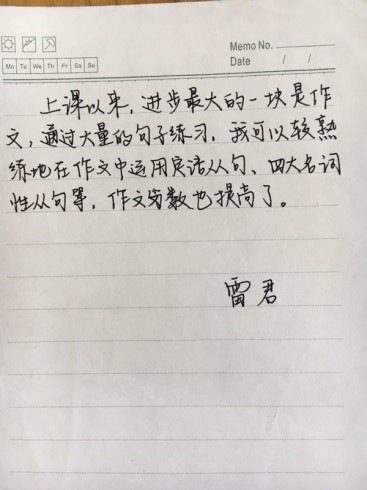 Memo No.
Mo Tu We Th Fr Sa Su
Date / /
上课以来，进步最大的一块是作
文，通过大量的句子练习，我可以较熟
练地在作文中运用定语从句、四大名词
性从句等，作文分数也提高了。
雷君